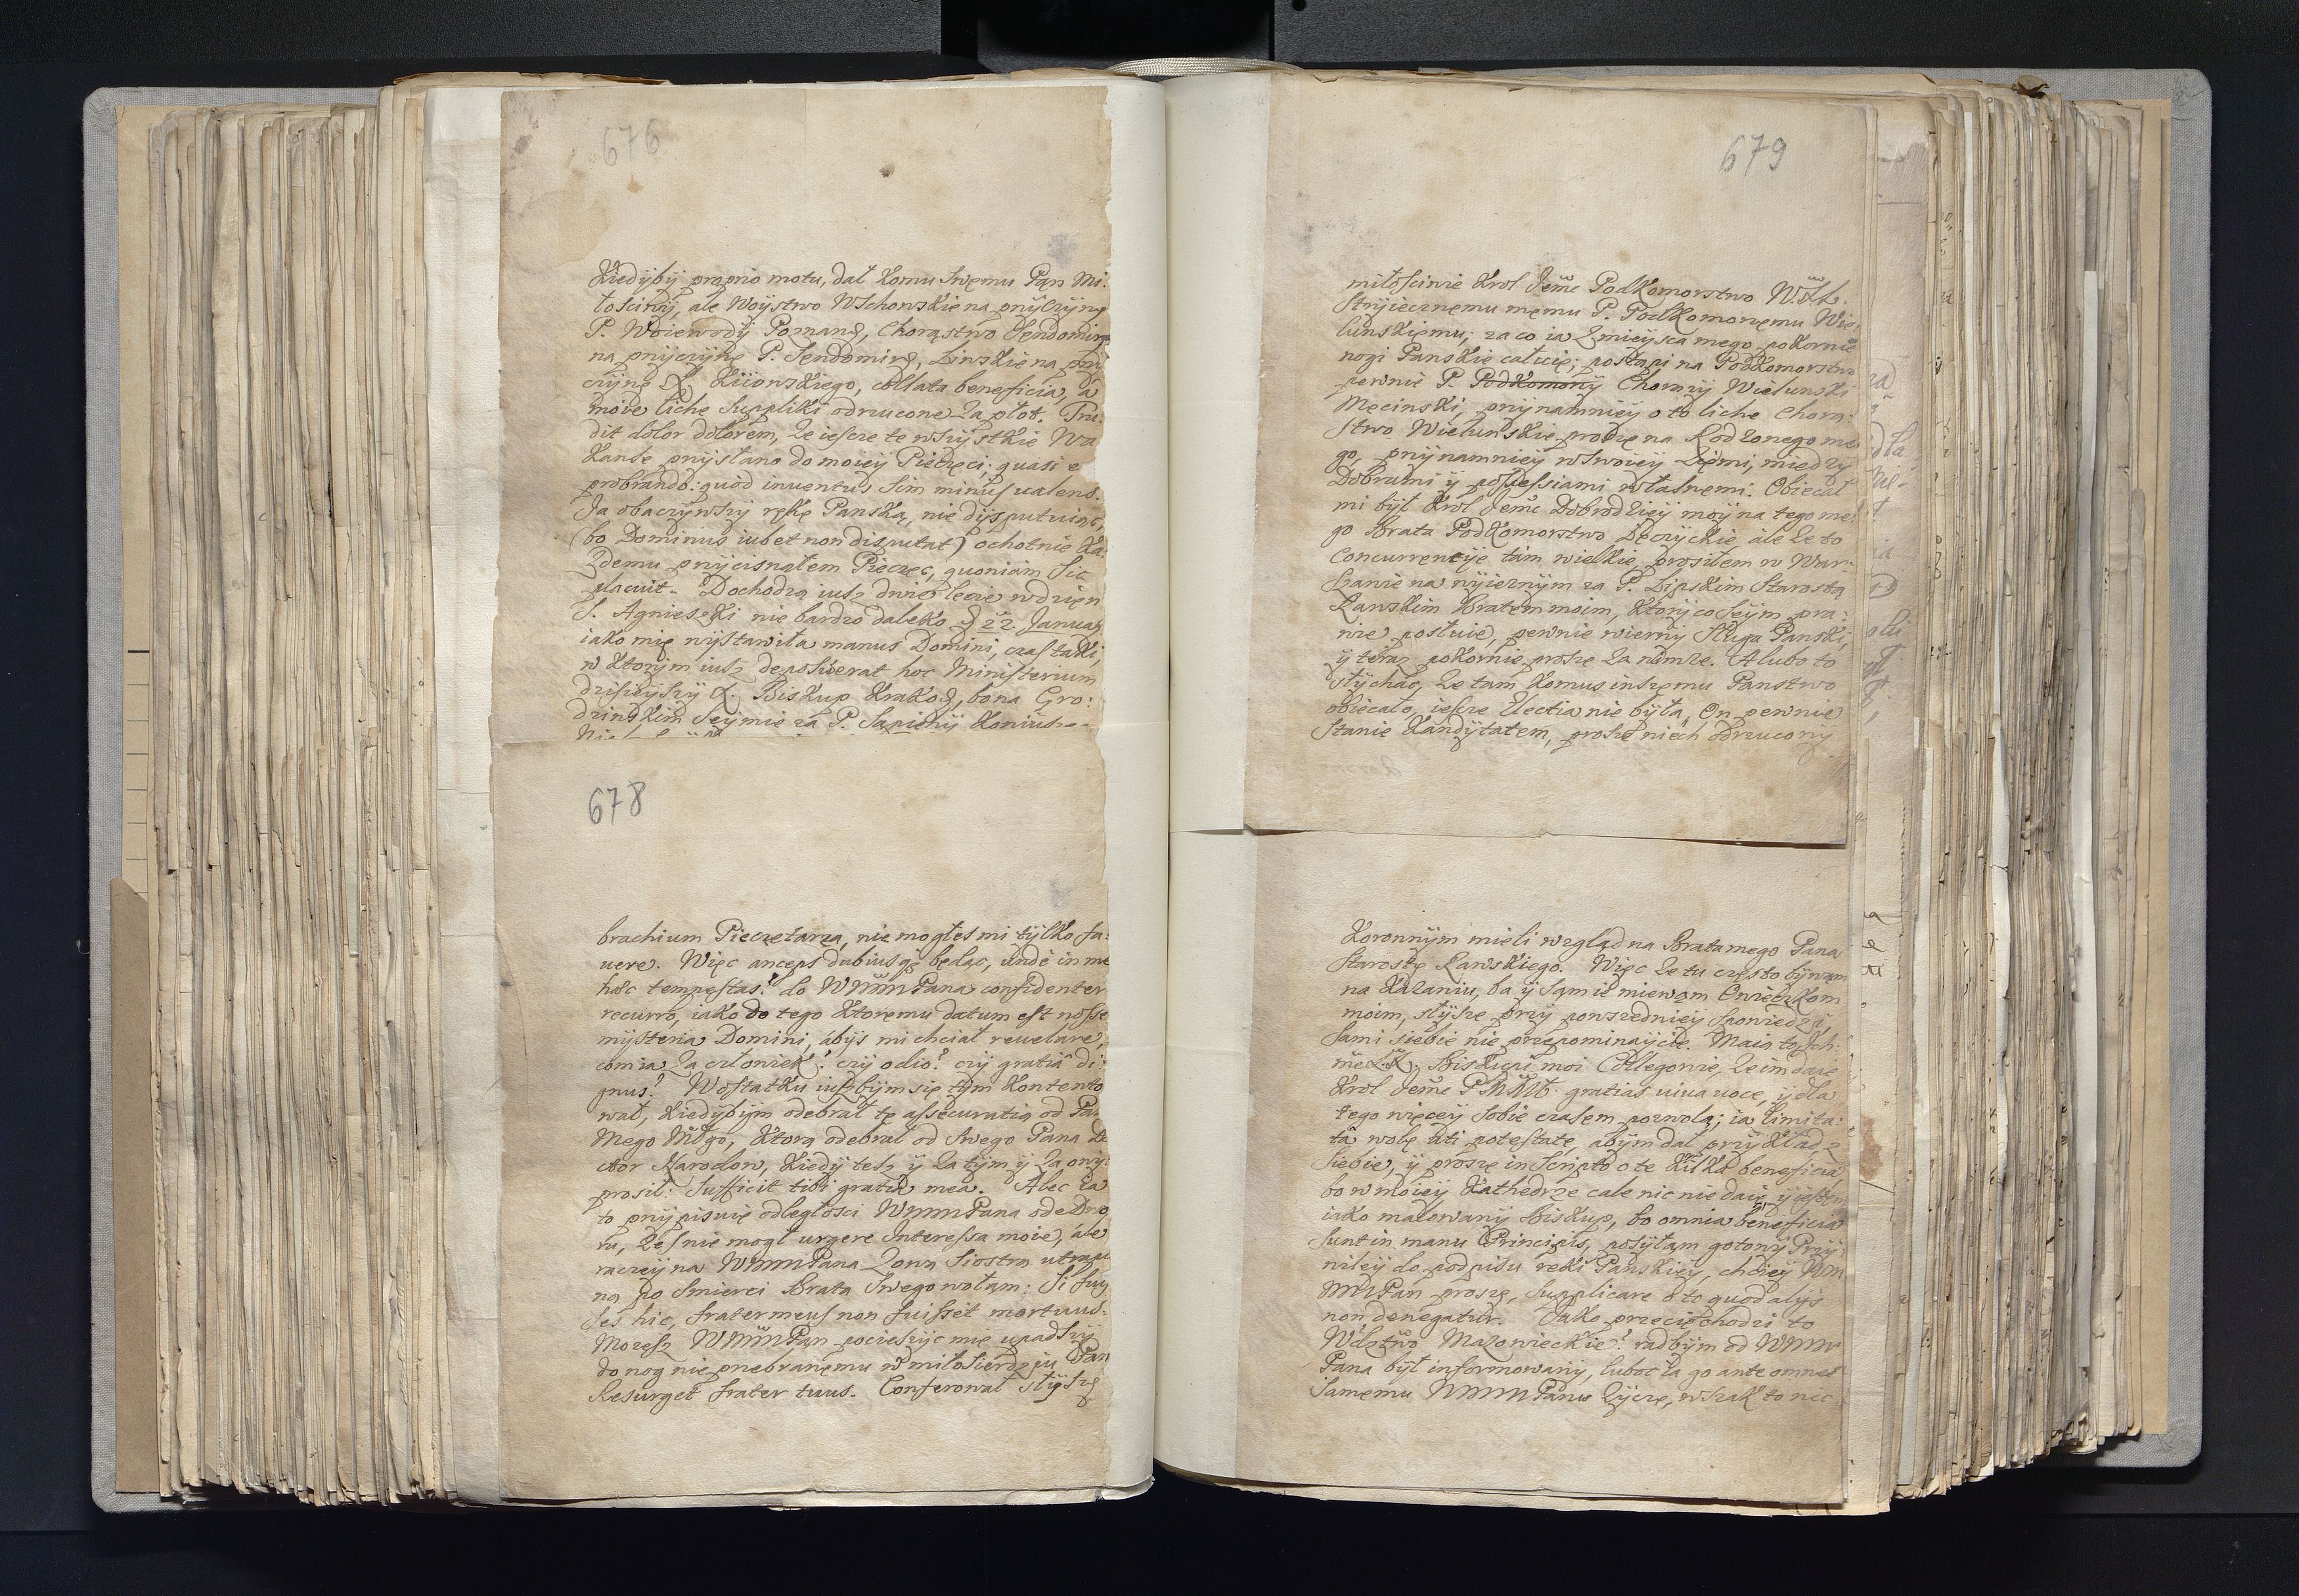 676
Kiedÿbÿ proprio motu, dał komu swemu Pan Mi:
łosciwÿ, ale Woÿstwo Wschowskie na przÿczÿnę
P. Woiewodÿ Poznang, Chorąstwo Sendomirg
na przÿczÿnę P. Sendomirg, Linskie na przÿ
czÿnę X. Kiiowskiego, collata beneficia, a
moie liche suppliki odrzucone za płot. Tru
dit dolor dolorem, ze iescze te wszÿstkie Wa
kanse przÿsłano do moieÿ Pieczęci; quasi e
probrando: quod inventus sim minus valens.
Ja obaczÿwszÿ rękę Panską, nie dÿsputuiąc,
(bo Dominus iubet non disputat) ochotnie ka:
zdemu przÿcisnąłem Pieczęc, quoniam sic
placuit. Dochodzą iusz dwie lecie w dzien
S. Agnieszki nie bardzo daleko g 22. Januarÿ
iako mię wÿstawiła manus Domini, czas taki,
w ktorÿm iusz deposuerat hoc Ministerium
dzisieÿszÿ X. Biskup Krakog, bo na Gro:
dzinskim Seÿmie za P. Sapiehÿ Koniusze
678
brachium Pieczętarza, nie mogłes mi tÿlko fa:
vere. Więc anceps dubiusq. będąc, unde in me
hæc tempestas? do WMMPana confidenter
recurro, iako do tego ktoremu datum est nosse
mÿsteria Domini, abÿs mi chciał revelare,
com ia za człowiek? czÿ odio? czÿ gratiâ di:
gnus? W ostatku iuszbÿm się tÿm kontento
wał, kiedÿbÿm odebrał tę assecuratią od Pa
Mego Młgo, ktorą odebrał od swego Pana Do
ctor Narodow, kiedÿ tesz ÿ za tÿm ÿ za owÿ:
prosił: Sufficit tibi gratia mea. Alec ia
to przÿpisuię odległosci WMMPana ode Dwo
ru, zes nie mogł urgere Interessa moie, ále
raczeÿ na WMMPana zową siostrą utrapi
ną po smierci Brata swego wołam: Si fuis
ses hic, frater meus non fuisset mortuus.
Mozesz WMMPan pocieszÿc mię upadszÿ
do nog nie przebranemu w miłosierdziu Pan
Resurget frater tuus. Conferował słÿszę
679
miłosciwie Krol Jemc Podkomorstwo Włk.
Strÿiecznemu memu P. Podkomorzemu Wie
lunskiemu; za co ia z mieÿsca mego pokornie
nogi Panskie całuię; postąpi na Podkomorstwo
pewnie P. Podkomorzÿ Chorązÿ Wielunski
Męcinski, przÿnamnieÿ o to liche Chorą:
stwo Wielunskie proszę na Rodzonego me
go, przÿnamnieÿ w swoieÿ Ziemi, międzÿ
Dobrami ÿ possessiami własnemi. Obiecał
mi bÿł Krol Jemc Dobrodzieÿ moÿ na tego me:
go Brata Podkomorstwo Łęczÿckie ale ze to
Concurrencÿe tam wielkie, prosiłem w War:
szawie na wÿieznÿm za P. Lipskim Starostą
Rawskim Bratem moim, ktorÿ co Seÿm pra:
wie posłuie, pewnie wiernÿ Sługa Panski,
ÿ teraz pokornie proszę za nimze. A lubo to
słÿchac, ze tam komus inszemu Panstwo
obiecało, iescze Electia nie bÿła, On pewnie
stanie Kandÿtatem, proszę niech odrzuconÿ
Koronnÿm mieli wzgląd na Brata mego Pana
Starostę Rawskiego. Więc ze tu często bÿwam
na Kazaniu, ba ÿ sam ie miewam Owieczkom
moim, słÿszę przÿ powszednieÿ spowiedzi,
sami siebie nie przepominaÿcie. Maią to Jch
mc XX. Biskupi moi Collegowie, ze im daie
Krol Jemc PNMłt. gratias viva voce, ÿ dla
tego więceÿ sobie czasem pozwolą; ia limita:
tâ wolę uti potestate, abÿm dał przÿkład z
siebie, ÿ proszę in scripto o te kilka beneficia
bo w moieÿ Kathedrze cale nic nie daię, ÿ iestem
iako malowanÿ Biskup, bo omnia beneficia
sunt in manu Principis, posÿłam gotowÿ Przÿ:
wileÿ do podpisu ręki Panskieÿ, chcieÿ WM
MMPan proszę, supplicare o to quod alÿs
non denegatur. Jako przecię chodzi to
Wdztwo Mazowieckie? rad bÿm od WMM
Pana bÿł informowanÿ, luboc ia go ante omnes
samemu WMMPanu zÿczę, wszak to nic